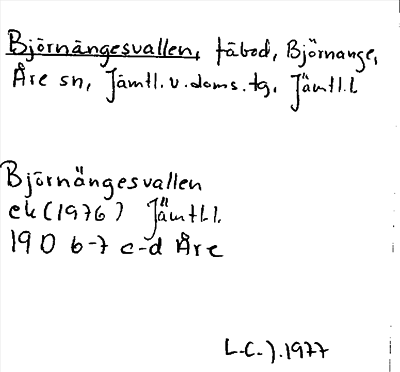 Björnängesvallen, fäbod, Björnänge,
Åre sn, Jämtl.v.doms.tg, Jämtl.l
Björnängesvallen
ek (1976) Jämtl.l.
19 D 6-7 c-d Åre
L-C-J.1977